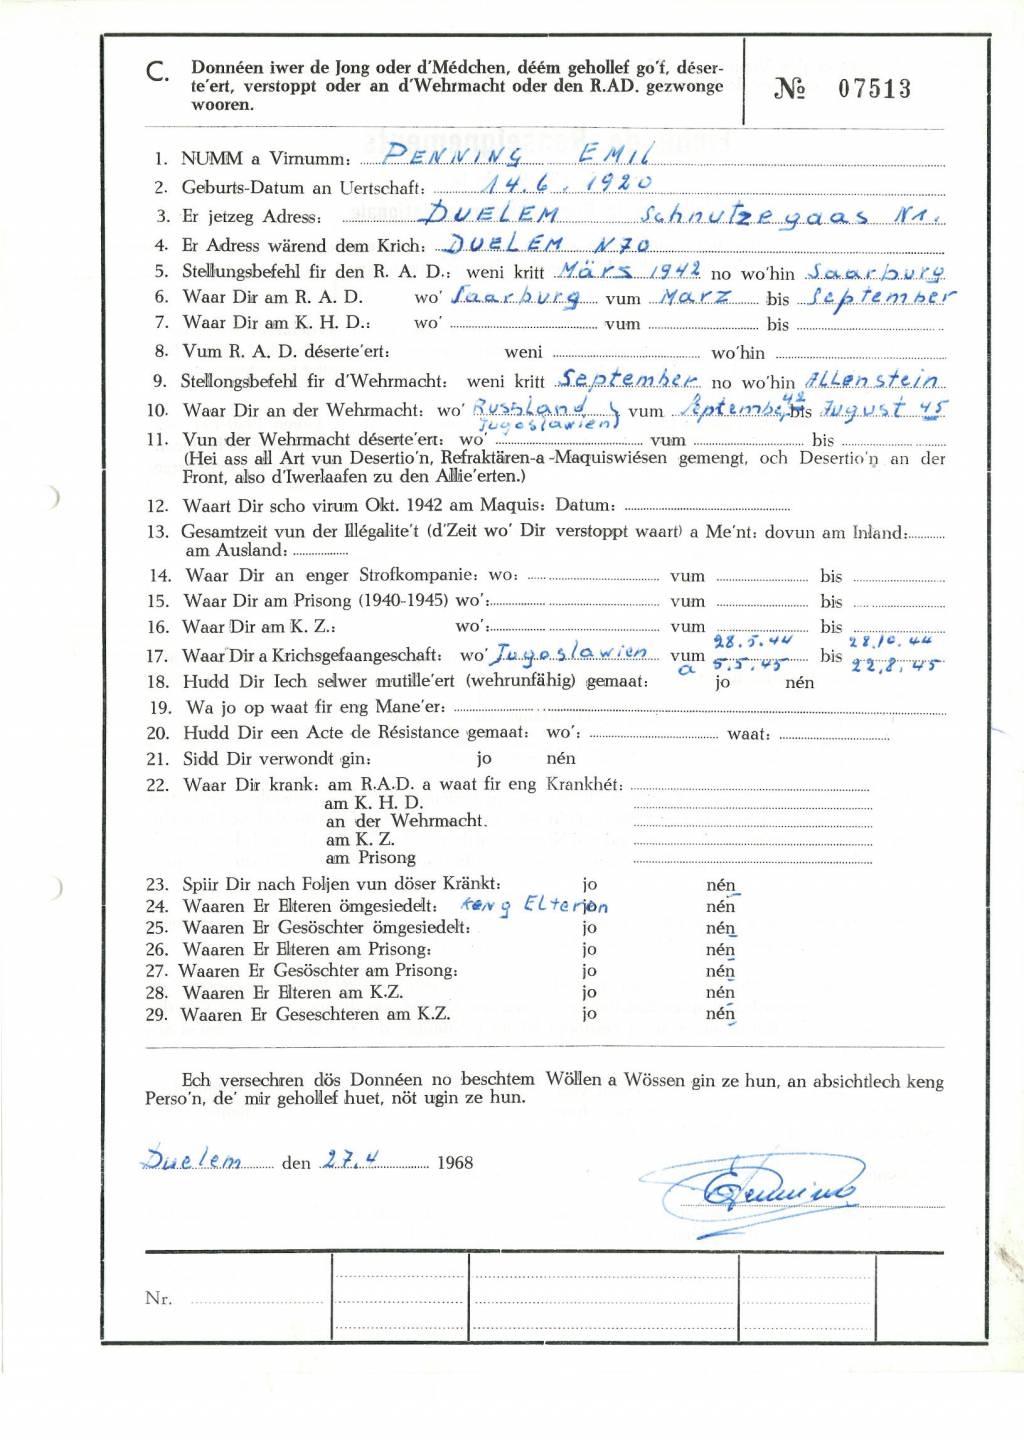 C. Donnéen iwer de Jong oder d'Médchen, déém gehollef go'f, déser-
te'ert, verstoppt oder an d'Wehrmacht oder den R.AD. gezwonge
wooren.
№ 07513
1. NUMM a Virnumm: PENNING EMIL
2. Geburts-Datum an Uertschaft: 14.6.1920
3. Er jetzeg Adress: DUELEM Schnutzegaas N1.
4. Er Adress wärend dem Krich: DUELEM N70
5. Stellungsbefehl fir den R. A. D.: weni kritt März 1942 no wo'hin Saarburg
6. Waar Dir am R. A. D. wo' Saarburg vum März bis September
7. Waar Dir am K. H. D.: wo' vum bis
8. Vum R. A. D. déserte'ert: weni wo'hin
9. Stellongsbefehl fir d'Wehrmacht: weni kritt September no wo'hin Allenstein
10. Waar Dir an der Wehrmacht: wo' Russland vum September 42 bis August 45
Jugoslawien)
11. Vun der Wehrmacht déserte'ert: wo' vum bis
(Hei ass all Art vun Desertio'n, Refraktären-a-Maquiswiésen gemengt, och Desertio'n an der
Front, also d'Iwerlaafen zu den Allie'erten.)
12. Waart Dir scho virum Okt. 1942 am Maquis: Datum:
13. Gesamtzeit vun der Illégalite't (d'Zeit wo' Dir verstoppt waart) a Me'nt: dovun am Inland:
am Ausland:
14. Waar Dir an enger Strofkompanie: wo: vum bis
15. Waar Dir am Prisong (1940-1945) wo': vum bis
16. Waar Dir am K. Z.: wo': vum bis
28.5.44 28.10.44
17. Waar Dir a Krichsgefaangeschaft: wo' Jugoslawien vum 5.5.45 bis 22.8.45
a
18. Hudd Dir Iech selwer mutille'ert (wehrunfähig) gemaat: jo nén
19. Wa jo op waat fir eng Mane'er:
20. Hudd Dir een Acte de Résistance gemaat: wo': waat:
21. Sidd Dir verwondt gin: jo nén
22. Waar Dir krank: am R.A.D. a waat fir eng Krankhét:
am K. H. D.
an der Wehrmacht.
am K. Z.
am Prisong
23. Spiir Dir nach Foljen vun döser Kränkt: jo nén
24. Waaren Er Elteren ömgesiedelt: keng Elteren jo nén
25. Waaren Er Gesöschter ömgesiedelt: jo nén
26. Waaren Er Elteren am Prisong: jo nén
27. Waaren Er Gesöschter am Prisong: jo nén
28. Waaren Er Elteren am K.Z. jo nén
29. Waaren Er Geseschteren am K.Z. jo nén
Ech versechren dös Donnéen no beschtem Wöllen a Wössen gin ze hun, an absichtlech keng
Perso'n, de' mir gehollef huet, nöt ugin ze hun.
Duelem den 27.4 1968
EPenning
Nr.